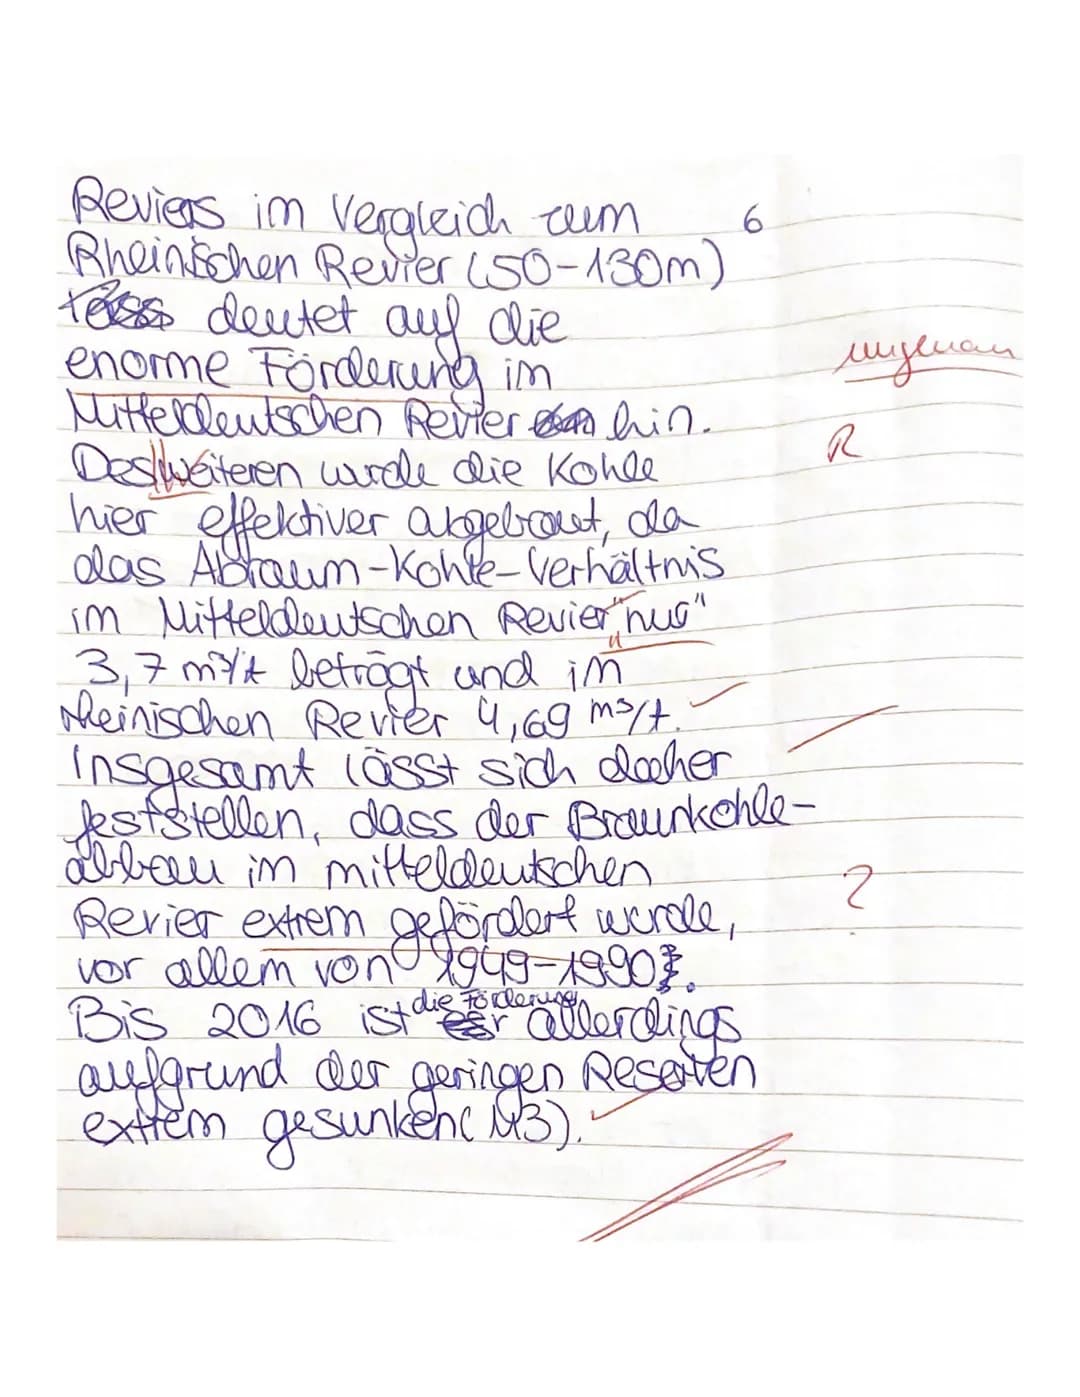 Reviers im Vergleich zum 6
Rheinischen Revier (50-130m)
deutet auf die
enorme Förderung im ungenau
Mitteldeutschen Revier hin.
Desweiteren wurde die Kohle R
hier effektiver abgebaut, da
das Abraum-Kohle-Verhältnis
im Mitteldeutschen Revier "nur"
3,7 m³/t beträgt und im
rheinischen Revier 4,69 m³/t.
Insgesamt lässt sich daher
feststellen, dass der Braunkohle-
abbau im mitteldeutschen
Revier extrem gefördert wurde, ?
vor allem von 1949-1990.
die Förderung
Bis 2016 ist allerdings
aufgrund der geringen Reserven
extrem gesunken (M3).